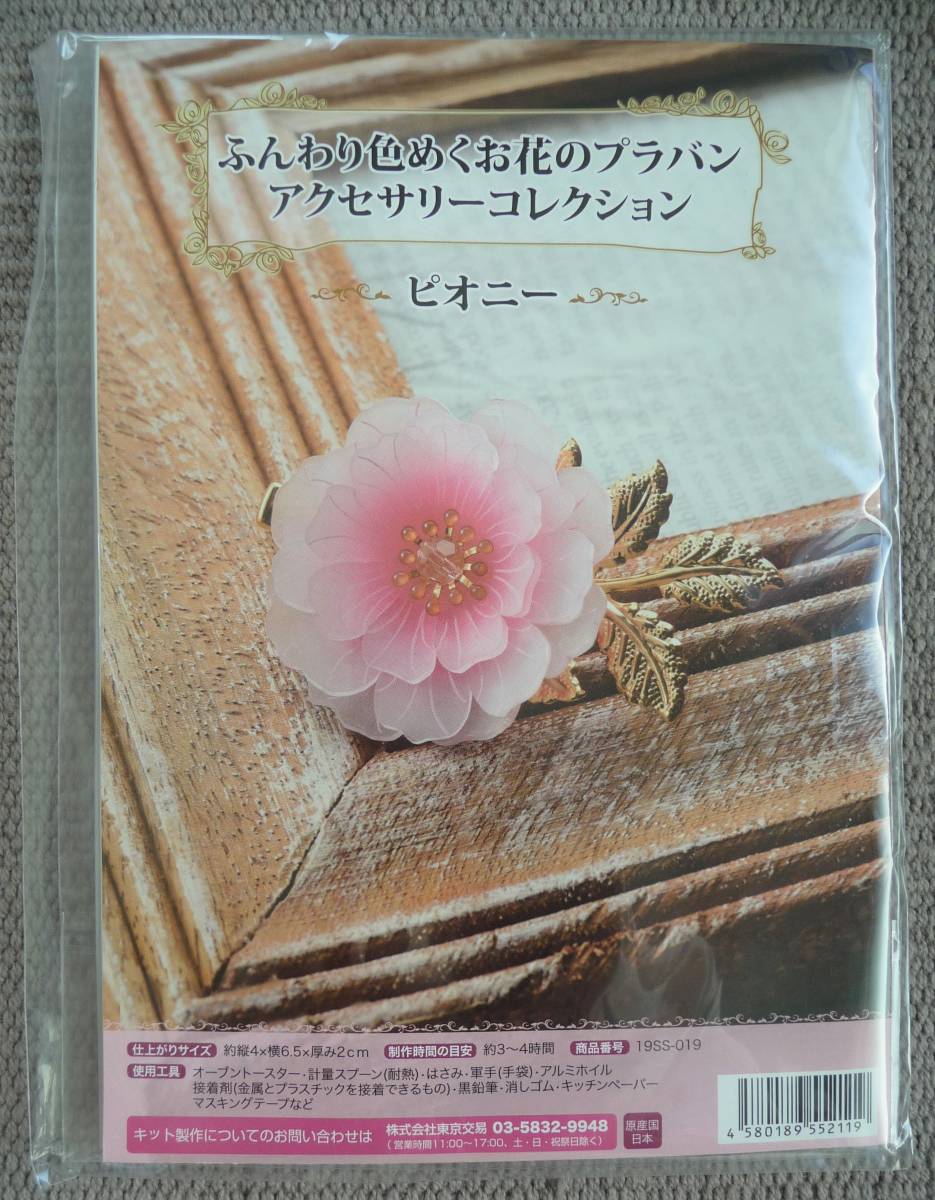 ふんわり色めくお花のプラバン
アクセサリーコレクション
ピオニー
仕上がりサイズ 約縦4×横6.5×厚み2cm 制作時間の目安 約3~4時間 商品番号 19SS-019
使用工具 オーブントースター・計量スプーン(耐熱)・はさみ・軍手(手袋)・アルミホイル
接着剤(金属とプラスチックを接着できるもの)・黒鉛筆・消しゴム・キッチンペーパー
マスキングテープなど
キット製作についてのお問い合わせは 株式会社東京交易 03-5832-9948
(営業時間11:00~17:00、土・日・祝祭日除く)
原産国
日本
4 580189 552119